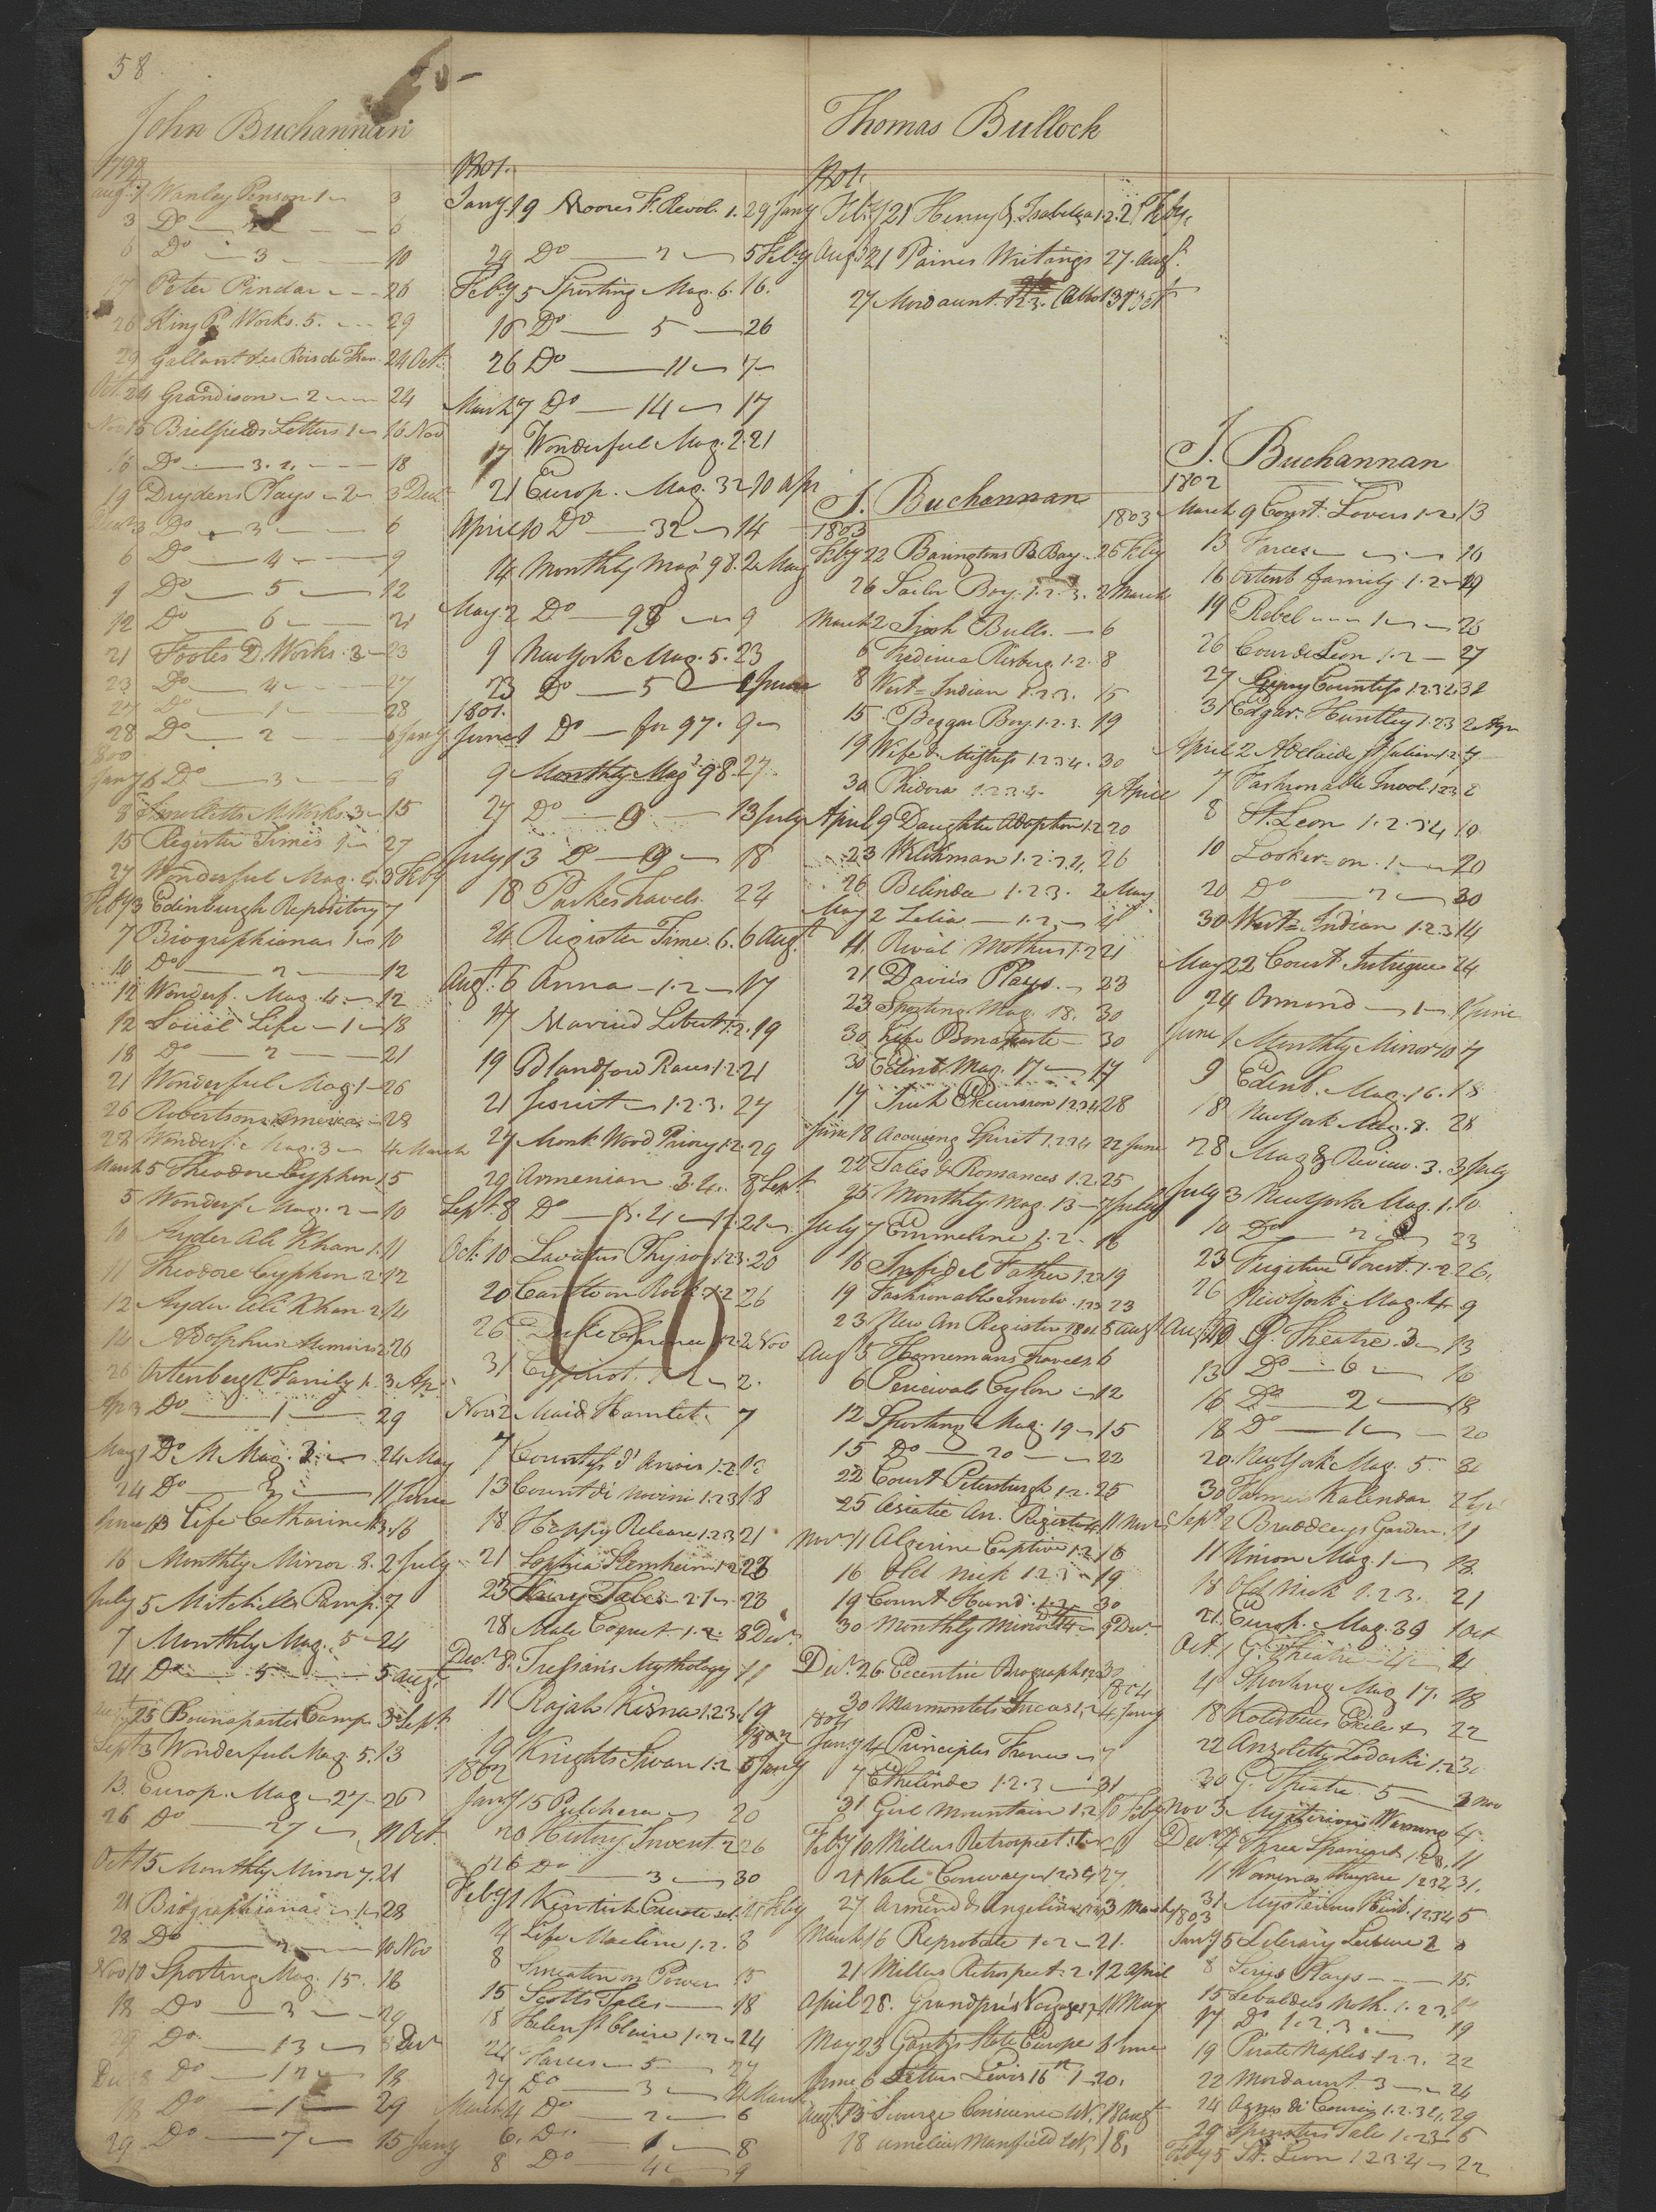 58
John Buchannan
1799
Augt 1 Wanley Penson 1 3
3 Do 6
6 Do 3 10
17 Peter Pindar 26
26 King P. Works. 5. 29
29 Gallant des Rois de Fran. 24 Oct.
Oct. 24 Grandison 2 24
Nov 16 Bielfields Letters 1 16 Nov
16 Do 3. 2. 18
19 Drydens Plays 2 3 Decr
Decr 3 Do 3 6
6 Do 4 9
9 Do 5 12
12 Do 6 21
21 Footes D. Works. 3 23
23 Do 4 27
27 Do 1 28
28 Do 2 6 Jany
1800
Jany 6 Do 3 8
8 Smolletts M. Works. 3 15
15 Register Times 1 27
27 Wonderful Mag. 4. 3 Feby
Feby 3 Edinburgh Repository 7
7 Biographiana 1 10
10 Do 2 12
12 Wonderf. Mag. 4. 12
12 Social Life 1 18
18 Do 2 21
21 Wonderful Mag. 1 26
26 Robertsons America 28
28 Wonderf. Mag. 3 4 March
March 5 Theodore Cyphon 1 5
5 Wonderf. Mag. 2 10
10 Ayder Ali Khan 1. 11
11 Theodore Cyphon 2. 12
12 Ayder Ali Khan 2. 14
14 Adolphus Memoirs 2. 26
26 Ortenbergh Family 1. 3 Apr.
Apr 3 Do 1 29
May 1 Do M. Mag. 3 24 May
24 Do 11 June
June 13 Life Catharine 13. 16
16 Monthly Mirror. 8. 2 July
July 5 Mitchills Pamp. 7
7 Monthly Mag. 5 24
24 Do 5 5 Augt
25 Buonapartes Camp. 3 Sept
Sept 3 Wonderful Mag. 5. 13
13. Europ. Mag. 27 26
26 Do 27 11 Oct
Oct 15 Monthly Mirror 7. 21
21 Biographiana 1 28
28 Do 2 10 Nov
Nov 10 Sporting Mag. 15. 18
18 Do 3 29
29 Do 13 8 Decr
Decr 8 Do 12 18
18 Do 1 29
29 Do 7 15 Jany
1801.
Jany. 19 Moores F. Revol. 1. 29 Jany
29 Do 2 5 Feby
Feby 5 Sporting Mag. 6. 16.
16 Do 5 26
26 Do 11 7
March 7 Do 14 17
17 Wonderful Mag. 2. 21
21 Europ. Mag. 32 10 Apr
April 10 Do 32 14
14 Monthly Mag. 98. 2 May
May 2 Do 98 9
9 NewYork Mag. 5. 23
23 Do 5 1 June
1801.
June 1 Do for 97. 9
9 Monthly Mag. 98. 27
27 Do 13 July
July 13 Do 18
18 Parkes Travels. 24
24 Register Time. 6. 6 Augt.
Augt. 6 Anna 1. 2 17
17 Married Libert 1. 2. 19
19 Blandford Races 1. 2 21
21 Jesuit 1. 2. 3. 27
27 Monk Wood Priory 1. 2. 29
29 Armenian. 3. 4. 8 Sept
Sept. 8 Do
Oct. 10 Lavaters Physiog 1. 2. 3. 20
20 Carlton on Rock 1. 2 26
26 2 Nov
31 Cypriot. 1. 2 2.
Nov. 2 Maid Hamlet. 7
7 Countess d'Anois 1. 2. 13
13 Count di Novini 1. 2 3 18
18 Happy Release 1. 2 3 21
21 Sophia Sternheim 1. 2 23
23 Fairy Tales 2. 1 28
28 Male Coquet. 1. 2. 8 Decr.
Decr 8. Tressans Mythology 11
11 Rajah Kisna 1. 2 3. 19
1802
19 Knights Swan 1. 2 5 Jany
1802
Jany 15 Pulchera 20
20 History Invent. 2 26
26 Do 3 30
Feby 1 Kentish Curate
4 Life Maclin 1. 2. 8
8 Smeaton on Power 15
15 Scotts Tales 18
18 Helen St. Claire 1. 2 24
24 Farces 5 27
27 Do 3 4 March
March 4 Do 2 6
6. Do 1 8
8 Do 4 9
Thomas Bullock
1801.
Feby 21 Henry & Isabella 1. 2. 25 Feby
Augt 21 Paines Writings 27. Augt.
27 Mordaunt. 1. 2. 3.
J. Buchannan
1803
Feby 22 Baringtons B. Bay. 26 Feby
26 Sailor Boy. 1. 2. 3. 2 March
March 2 Irish Bulls. 6
6 Fredirica Risberg. 1. 2. 8
8 West-Indian 1. 2 3. 15
15. Beggar Boy. 1. 2. 3. 19
19 Wife & Mistress 1. 2 3 4. 30
30 Phedora 1. 2. 3. 4. 9 April
April 9 Daughter Adoption 1. 2 20
23 Welchman 1. 2. 3. 4. 26
26 Belinda 1. 2 3. 2 May
May 2 Lelia 1. 2.
11 Rival Mothers 1. 2 21
21 Davies Plays. 23
23 Sporting Mag. 18. 30
30 Life Bonaparte 30
30 Edinb. Mag. 17 17
17 Irish Excursion 1. 2 3 4 28
June 18 Accusing Spirit 1. 2 3 4 22 June
22 Tales & Romances 1. 2. 25
25 Monthly Mag. 13 7 July
July 7 Emmeline 1. 2. 16
16 Infidel Father 1. 2 3 19
19 Fashionable Involv. 1. 2 3 23
23 New An Register 1801 5 Augt
Augt 5 Hornemans Travels 6
6 Percivals Ceylon 12
12 Sporting Mag. 19 15
15 Do 20 22
22 Court Petersburgh 1. 2. 25
25 Asiatic An. Register 4 11 Nov
Nov 11 Algerine Captive 1. 2. 16
16 Old Nick 1. 2 3 19
19 Count & Hund. 1. 2. 30
30 Monthly Mirror 14 9 Decr.
Decr. 26. Eccentric Biography 30
1804
30 Marmontels Incas 1. 2 4 Jany
1804
Jany 4 Principles France 7
7 Ethelinde 1. 2. 3 31
31 Girl Mountain 1. 2 10 Feby
Feby 10 Millers Retrospect
21 Vale Conway 1. 2 3 4 27.
27 Armend & Angelina 3 March
March 16 Reprobate 1. 2 21.
21 Millers Retrospect. 2. 12 April
April 28. Grandpres Voyage 11 May
May 23 Gentz's State Europe 8 June
June 6 Letters Lewis 16th 1 20.
Augt. 13 Scourge Conscience 18 Augt
18 Amelia Mansfield
J. Buchannan
1802
March 9 Const. Lovers 1. 2 13
13 Farces 16
16 Ortenb. Family. 1. 2 19
19 Rebel 1 26
26 Cour de Leon 1. 2 27
27 Gypsey Countess 1. 2 3 2. 31
31 Edgar. Huntley 1. 2 3 2 Apr
April 2 Adelaide St Julian 1. 2. 7
7 Fashionable Invol. 1. 2 3 8
8 St. Leon 1. 2. 3 4 10
10 Looker-on. 1 20
20 Do 2 30
30 West-Indian 1. 2. 3 14
May 22 Court Intrigue 24
24 Ormond 1 1 June
June 1 Monthly Mirror 10 7
9 Edinb. Mag. 16. 18
18 NewYork Mag. 8. 28
28 Mag & Review. 3. 3 July
July 3 NewYork Mag. 1. 10
10 Do 2 23
23 Fugitive Forest. 1. 2 26.
26 NewYork Mag. 4 9
Augt 10 G. Theatre. 3 13
13 Do 6 16
16 Do 2 18
18 Do 1 20
20 NewYork Mag. 5 30
30 Farmers Kalendar 2 Sept
Sept 2 Bradleys Garden. 11
11 Union Mag. 1 18
18 Old Nick 1. 2. 3. 21
21. Europ. Mag. 39 1 Oct
Oct. 1 G. Theatre 4 4
4 Sporting Mag 17. 18
18 Kotzebues Exile 22
22 Anzoletty Zadoski 1. 2 30
30 G. Theatre 5 3 Nov
Nov 3. Mysterious Warning 4.
Decr 4 Three Spaniards 1. 2 3. 11
11 Womenas they are 1 2 3 2 31.
31 Mysterious Husb. 1. 2 3 4 5
1803
Jany 5 Literary Leisure 2 8
8 Sirrys Plays 15.
15 Lebaldels Moth. 1. 2 3.
17 Do 1. 2. 3 19
19 Pirate Naples. 1. 2 3. 22
22 Mordaunt 3 24
24 Agnes di Courcy 1. 2. 3 4. 29
29 Spinsters Tale 1. 2 3 5
Feby 5 St. Leon 1 2 3. 4 22